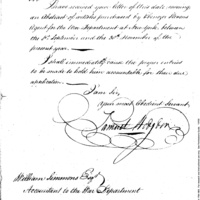 I have received your letter of this date, covering
an Abstract of Articles purchased by Ebenezer Stevens
Agent for the War Department at New York, between
the 1st September and the 30th November of the
present year.
I shall immediately cause the proper entries
to be made to hold him accountable for their due
application.
I am Sir,
Your most Obedient Servant,
Samuel Hodgdon
William Simmons Esqr
Accountant to the War Department